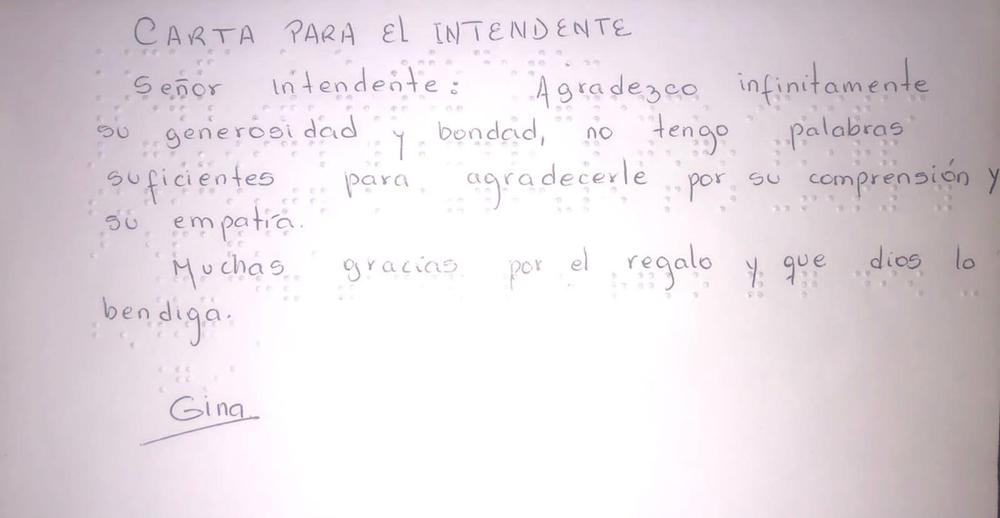 CARTA PARA El INTENDENTE
Señor intendente: Agradezco infinitamente
su generosidad y bondad, no tengo palabras
suficientes para agradecerle por su comprensión y
su empatía.
Muchas gracias por el regalo y que dios lo
bendiga.
Gina